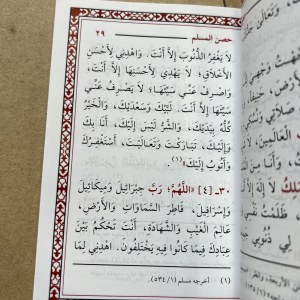 حصن المسلم
٢٩
لَا يَغْفِرُ الذُّنُوبَ إِلَّا أَنْتَ. وَاهْدِنِي لِأَحْسَنِ
الْأَخْلَاقِ، لَا يَهْدِي لِأَحْسَنِهَا إِلَّا أَنْتَ،
وَاصْرِفْ عَنِّي سَيِّئَهَا، لَا يَصْرِفُ عَنِّي
سَيِّئَهَا إِلَّا أَنْتَ. لَبَّيْكَ وَسَعْدَيْكَ، وَالْخَيْرُ
كُلُّهُ بِيَدَيْكَ، وَالشَّرُّ لَيْسَ إِلَيْكَ، أَنَا بِكَ
وَإِلَيْكَ، تَبَارَكْتَ وَتَعَالَيْتَ، أَسْتَغْفِرُكَ
وَأَتُوبُ إِلَيْكَ»(١)
٣٠ـ [٤] «اللَّهُمَّ، رَبَّ جِبْرَائِيلَ وَمِيكَائِيلَ
وَإِسْرَافِيلَ، فَاطِرَ السَّمَاوَاتِ وَالْأَرْضِ،
عَالِمَ الْغَيْبِ وَالشَّهَادَةِ، أَنْتَ تَحْكُمُ بَيْنَ
عِبَادِكَ فِيمَا كَانُوا فِيهِ يَخْتَلِفُونَ. اهْدِنِي لِمَا
(١) أخرجه مسلم (١/ ٥٣٤).